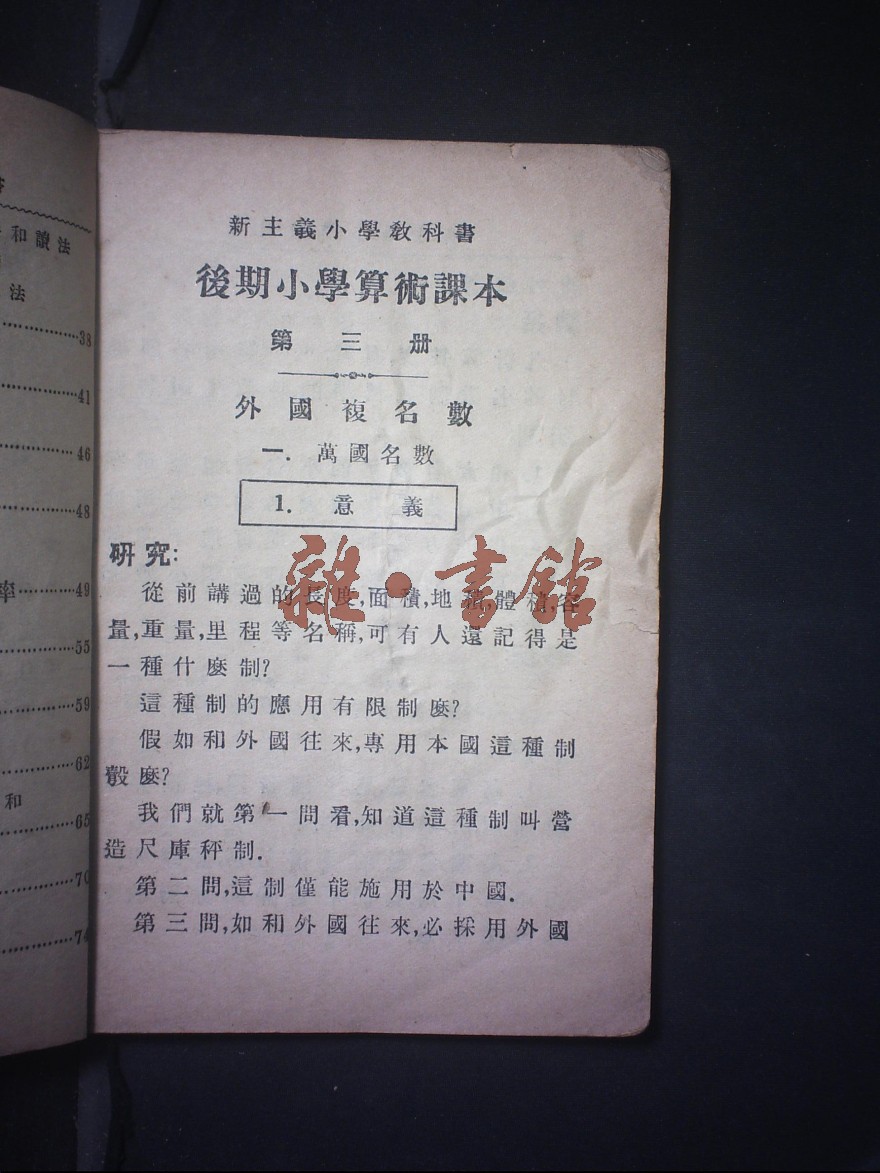 新主義小學教科書
後期小學算術課本
第三册
外國複名數
一. 萬國名數
1. 意義
研究:
從前講過的長度,面積,地積,體積,容
量,重量,里程等名稱,可有人還記得是
一種什麽制?
這種制的應用有限制麽?
假如和外國往來,專用本國這種制
彀麽?
我們就第一問看,知道這種制叫營
造尺庫秤制.
第二問,這制僅能施用於中國.
第三問,如和外國往來,必採用外國
雜·書館
和讀法
法
38
41
46
48
率 49
55
59
62
和
65
70
74